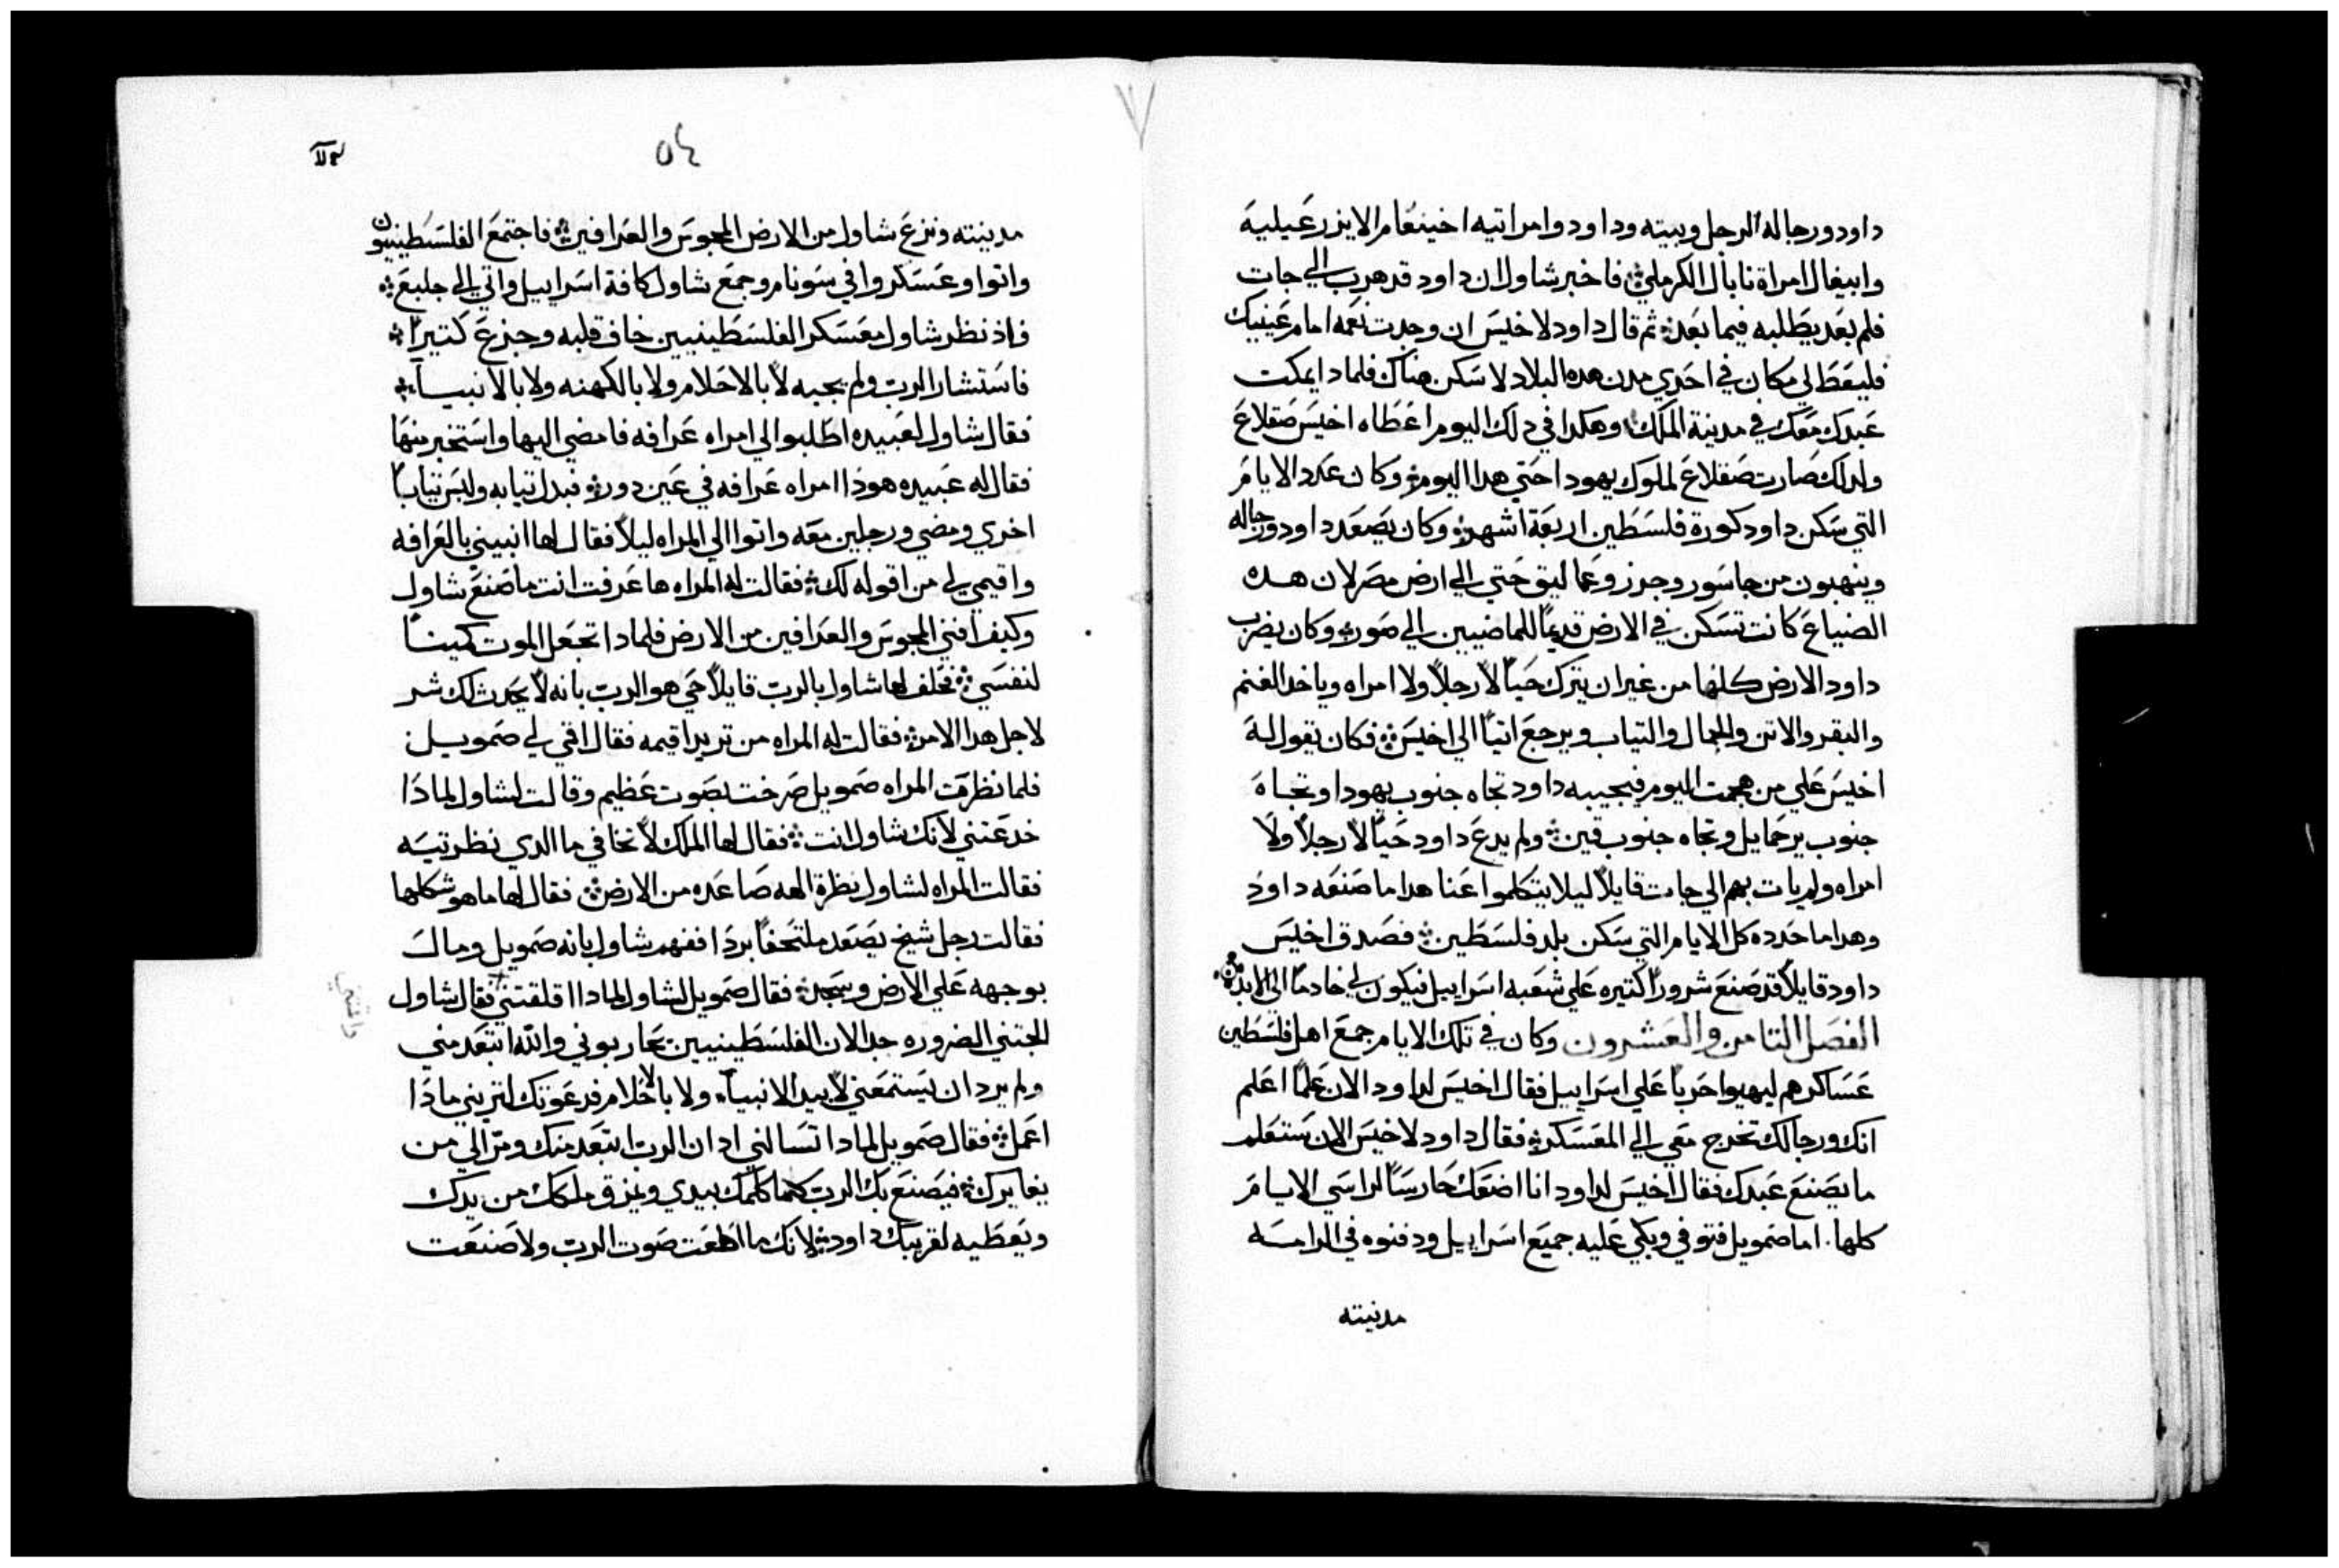 داود ورجاله الرجل وبيته وداود وامراتيه اخينعام الايزرعيلية
وابيغال امراة نابال الكرملي فاخبر شاول ان داود قد هرب الي جات
فلم يعد يطلبه فيما بعد ثم قال داود لاخيس ان وجدت نعمه امام عينيك
فليعط لي مكان في احدي مدن هده البلاد لاسكن هناك فلمادا يمكت
عبدك معك في مدينة الملك وهكدا في دلك اليوم اعطاه اخيس صقلاغ
ولدلك صارت صقلاغ لملوك يهودا حتي هدا اليوم وكان عدد الايام
التي سكن داود كورة فلسطين اربعة اشهر وكان يصعد داود ورجاله
وينهبون من جاسور وجرز وعماليق حتي الي ارض مصر لان هده
الضياع كانت تسكن في الارض قديمًا للماضيين الي صور وكان يضرب
داود الارض كلها من غير ان يترك حيًا لا رجلاً ولا امراه وياخد الغنم
والبقر والاتن والجمال والتياب ويرجع اتيًا الي اخيس فكان يقول له
اخيس علي من هجمت اليوم فيجيبه داود تجاه جنوب يهودا وتجاه
جنوب يرحمايل وتجاه جنوب قين ولم يدع داود حيًا لا رجلاً ولا
امراه ولم يات بهم الي جات قايلاً ليلا يتكلموا عنا هدا ما صنعه داود
وهدا ما حدده كل الايام التي سكن بلد فلسطين فصدق اخيس
داود قايلاً قد صنع شرورًا كتيره علي شعبه اسراييل فيكون لي خادمًا الي الابد
الفصل التامن والعشرون وكان في تلك الايام جمع اهل فلسطين
عساكرهم ليهيوا حربًا علي اسراييل فقال اخيس لداود الان علمًا اعلم
انك ورجالك تخرج معي الي المعسكر فقال داود لاخيس الان ستعلم
ما يصنع عبدك فقال اخيس لداود انا اضعك حارسًا لراسي الايام
كلها. اما صمويل فتوفي وبكي عليه جميع اسراييل ودفنوه في الرامه
مدينته
٥٤
مدينته ونزع شاول من الارض المجوس والعرافين فاجتمع الفلسطينيون
واتوا وعسكروا في سونام وجمع شاول كافة اسراييل واتي الي جلبع
واذ نظر شاول معسكر الفلسطينيين خاف قلبه وجزع كتيرًا
فاستشار الرب ولم يجبه لا بالاحلام ولا بالكهنه ولا بالانبيآء
فقال شاول لعبيده اطلبوا لي امراه عرافه فامضي اليها واستخبر منها
فقال له عبيده هودا امراه عرافه في عين دور فبدل تيابه ولبس تيابًا
اخري ومضي ورجلين معه واتوا الي المراه ليلاً فقال لها انبييني بالعرافه
واقيمي لي من اقوله لك فقالت له المراه ها عرفت انت ما صنع شاول
وكيف افني المجوس والعرافين من الارض فلمادا تجعل الموت كمينًا
لنفسي فحلف لها شاول بالرب قايلاً حي هو الرب بانه لا يحدث لك شر
لاجل هدا الامر فقالت له المراه من تريد اقيمه فقال اقمي لي صمويل
فلما نظرت المراه صمويل صرخت بصوت عظيم وقالت لشاول لمادا
خدعتني لانك شاول انت فقال لها الملك لا تخافي ما الدي نظرتيه
فقالت المراه لشاول نظرة الهه صاعده من الارض فقال لها ما هو شكلها
فقالت رجل شيخ يصعد ملتحفًا بردا ففهم شاول بانه صمويل ومال
بوجهه علي الارض وسجد فقال صمويل لشاول لمادا اقلقتني فقال شاول
الجتني الضروره جدا لان الفلسطينيين يحاربوني والله ابتعد مني
ولم يرد ان يستمعني لا بيد الانبيآء ولا بالاحلام فدعوتك لتريني مادا
اعمل فقال صمويل لمادا تسالني اد ان الرب ابتعد منك ومر الي من
يغايرك فيصنع بك الرب كلما كلمك بيدي ويمزق ملكك من يدك
ويعطيه لقريبك داود لانك ما اطعت صوت الرب ولا صنعت